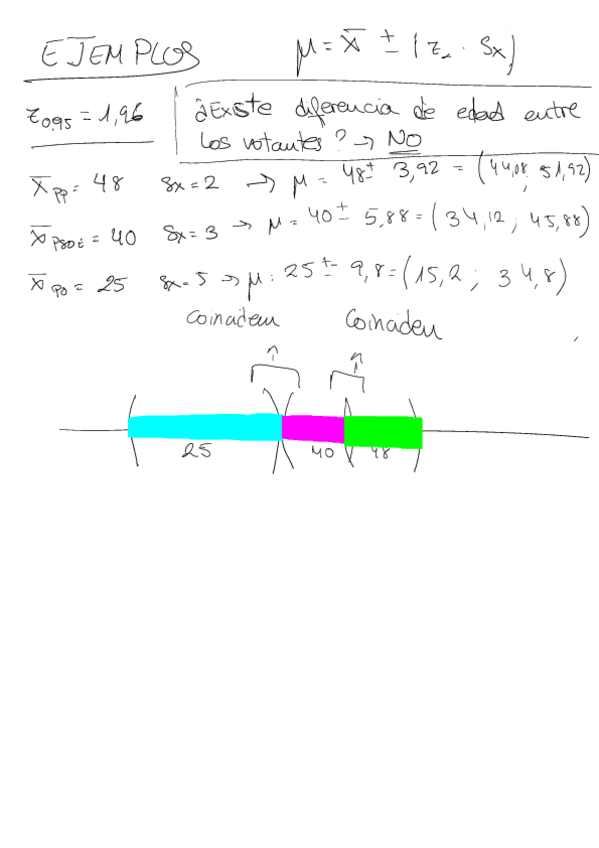 EJEMPLOS μ = x̄ ± (z_α · Sx)
z0,95 = 1,96
¿Existe diferencia de edad entre
los votantes? → NO
x̄pp = 48 sx = 2 → μ = 48 ± 3,92 = (44,08 ; 51,92)
x̄psoe = 40 sx = 3 → μ = 40 ± 5,88 = (34,12 ; 45,88)
x̄po = 25 sx = 5 → μ = 25 ± 9,8 = (15,2 ; 34,8)
Coinciden Coinciden
25 40 48